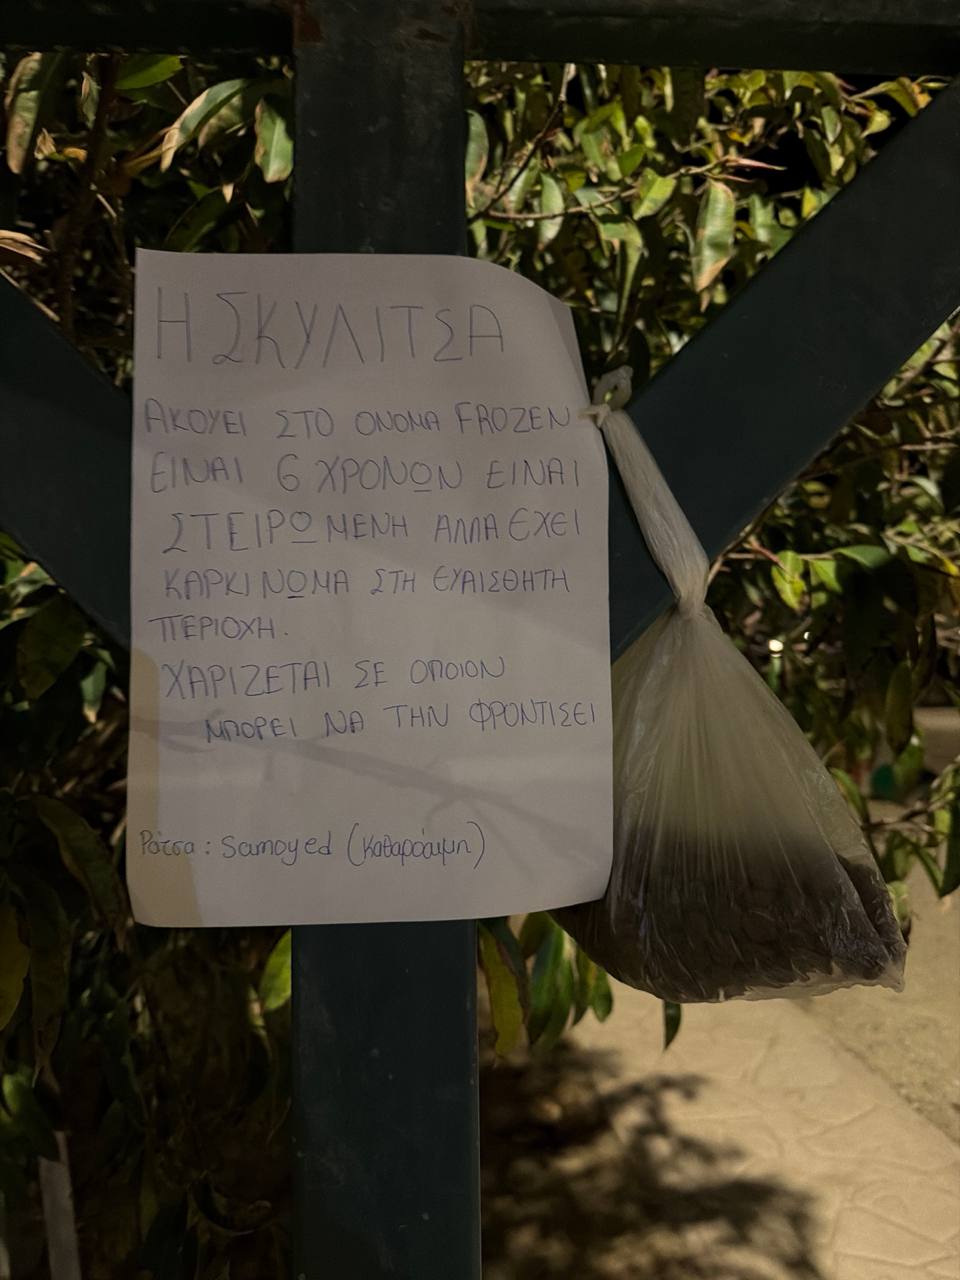 Η ΣΚΥΛΙΤΣΑ
ΑΚΟΥΕΙ ΣΤΟ ΟΝΟΜΑ FROZEN
ΕΙΝΑΙ 6 ΧΡΟΝΩΝ ΕΙΝΑΙ
ΣΤΕΙΡΩΜΕΝΗ ΑΛΛΑ ΕΧΕΙ
ΚΑΡΚΙΝΩΜΑ ΣΤΗ ΕΥΑΙΣΘΗΤΗ
ΠΕΡΙΟΧΗ.
ΧΑΡΙΖΕΤΑΙ ΣΕ ΟΠΟΙΟΝ
ΜΠΟΡΕΙ ΝΑ ΤΗΝ ΦΡΟΝΤΙΣΕΙ
Ράτσα: Samoyed (καθαρόαιμη)